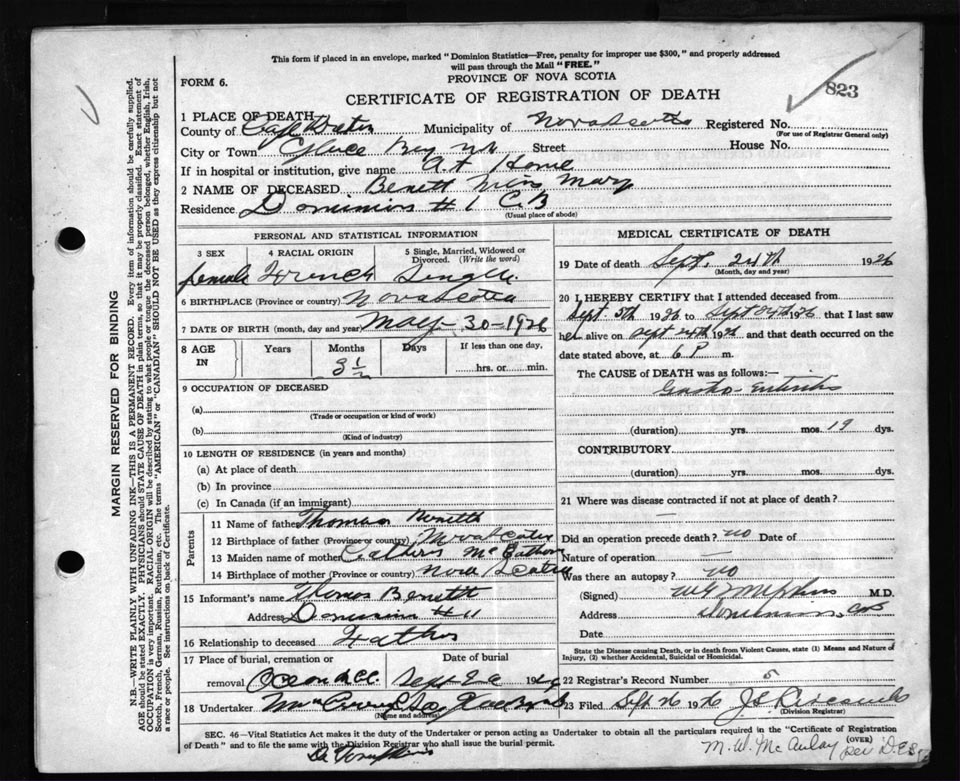 This form if placed in an envelope, marked "Dominion Statistics—Free, penalty for improper use $300," and properly addressed
will pass through the Mail "FREE."
FORM 6.
PROVINCE OF NOVA SCOTIA
823
CERTIFICATE OF REGISTRATION OF DEATH
1 PLACE OF DEATH
County of Cape Breton Municipality of Nova Scotia Registered No.
(For use of Registrar General only)
City or Town Glace Bay Street House No.
If in hospital or institution, give name At Home
2 NAME OF DECEASED Benett Miss Mary
Residence Dominion #1 C.B
(Usual place of abode)
PERSONAL AND STATISTICAL INFORMATION
3 SEX 4 RACIAL ORIGIN 5 Single, Married, Widowed or
Divorced. (Write the word)
female French Single
6 BIRTHPLACE (Province or country) Nova Scotia
7 DATE OF BIRTH (month, day and year) May-30-1926
8 AGE IN Years Months Days If less than one day,
3 1/2 hrs. or min.
9 OCCUPATION OF DECEASED
(a)
(Trade or occupation or kind of work)
(b)
(Kind of industry)
10 LENGTH OF RESIDENCE (in years and months)
(a) At place of death
(b) In province
(c) In Canada (if an immigrant)
Parents
11 Name of father Thomas Benett
12 Birthplace of father (Province or country) Nova Scotia
13 Maiden name of mother
14 Birthplace of mother (Province or country) Nova Scotia
15 Informant's name Thomas Benett
Address Dominion #11
16 Relationship to deceased Father
17 Place of burial, cremation or Date of burial
removal Sept 26 1926
18 Undertaker
(Name and address)
MEDICAL CERTIFICATE OF DEATH
19 Date of death Sept. 24th 1926
(Month, day and year)
20 I HEREBY CERTIFY that I attended deceased from
Sept. 5th 1926 to Sept 24th 1926 that I last saw
her alive on Sept 24th 1926 and that death occurred on the
date stated above, at 6 P m.
The CAUSE of DEATH was as follows:—
Gastro-Enteritis
(duration) yrs. mos. 19 dys.
CONTRIBUTORY
(duration) yrs. mos. dys.
21 Where was disease contracted if not at place of death?
—
Did an operation precede death? no Date of
Nature of operation —
Was there an autopsy? no
(Signed) M.D.
Address Dominion, C.B
Date
State the Disease causing Death, or in death from Violent Causes, state (1) Means and Nature of
Injury, (2) whether Accidental, Suicidal or Homicidal.
22 Registrar's Record Number 5
23 Filed Sept 26 1926
(Division Registrar)
SEC. 46—Vital Statistics Act makes it the duty of the Undertaker or person acting as Undertaker to obtain all the particulars required in the "Certificate of Registration
of Death" and to file the same with the Division Registrar who shall issue the burial permit.
(OVER)
M. W. McAulay
per D.E.S.
MARGIN RESERVED FOR BINDING
N.B.—WRITE PLAINLY, WITH UNFADING INK—THIS IS A PERMANENT RECORD. Every item of information should be carefully supplied.
AGE should be stated EXACTLY. PHYSICIANS should STATE CAUSE OF DEATH in plain terms, so that it may be properly classified. Exact statement of
OCCUPATION is very important. RACIAL ORIGIN will be described by stating to what people or tongue the deceased person belonged, whether English, Irish,
Scotch, French, German, Russian, Ruthenian, etc. The terms "AMERICAN" or "CANADIAN" SHOULD NOT BE USED as they express citizenship but not
a race or people. See instructions on back of Certificate.